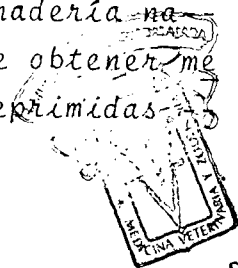 nadería na-
e obtener me
eprimidas
MEDICINA VETERINARIA Y ZOOT